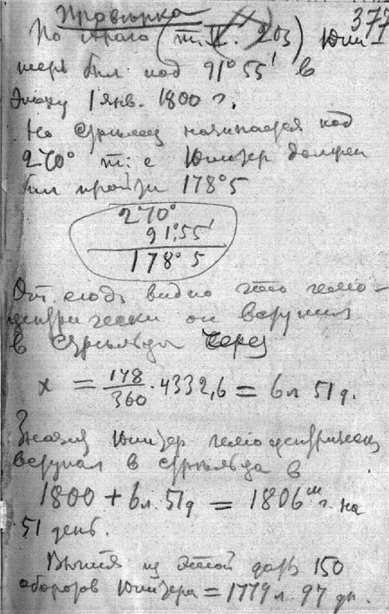 Провѣрка
377
По Араго (т. V. 203) Юпи-
теръ был под 91°55' в
Эпоху 1 янв. 1800 г.
Но Стрѣлец начинается под
270° т: е Юпитер должен
был пройти 178°5
270°
91°:55'
178°5
От сюда видно что гелио-
центрически он вступил
в Стрѣльца через
x = 178/360 · 4332,6 = 6 л 51 д.
Значит Юпитер гелиоцентрически
вступил в Стрѣльца в
1800 + 6 л. 51 д = 1806 г. на
51 день.
из этой даты 150
оборотов Юпитера = 1779 л. 97 дн.